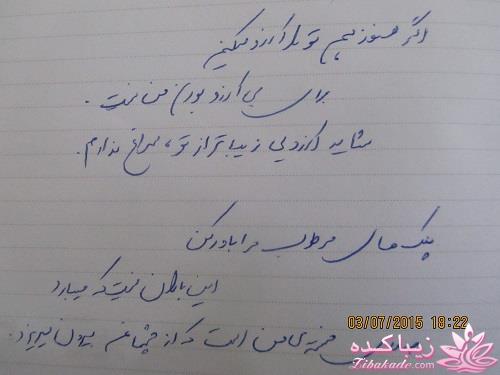 اگر هنوز هم تو را آرزو میکنم
برای بی آرزو بودن من نیست.
شاید آرزویی زیباتر از تو، سراغ ندارم.
پلک های مرطوب مرا باور کن
این باران نیست که میبارد
خسته ی من است که از چشمانم بیرون میریزد.
03/07/2015 18:22
زیباکده
Zibakade.com